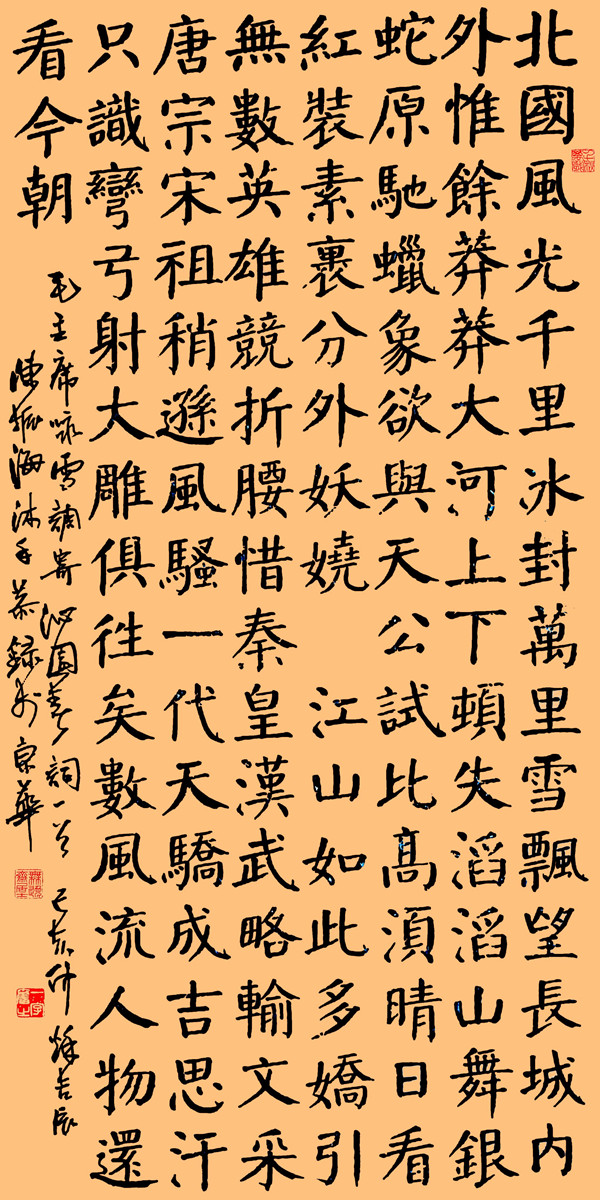 北國風光千里冰封萬里雪飄望長城内
外惟餘莽莽大河上下頓失滔滔山舞銀
蛇原馳蠟象欲與天公試比髙湏晴日看
紅裝素裹分外妖嬈 江山如此多嬌引
無數英雄競折腰惜秦皇漢武略輸文采
唐宗宋祖稍遜風騷一代天驕成吉思汗
只識彎弓射大雕俱徃矣數風流人物還
看今朝
毛主席咏雪調寄沁園春詞一首 己亥吉辰
陳海沐手恭錄於京華